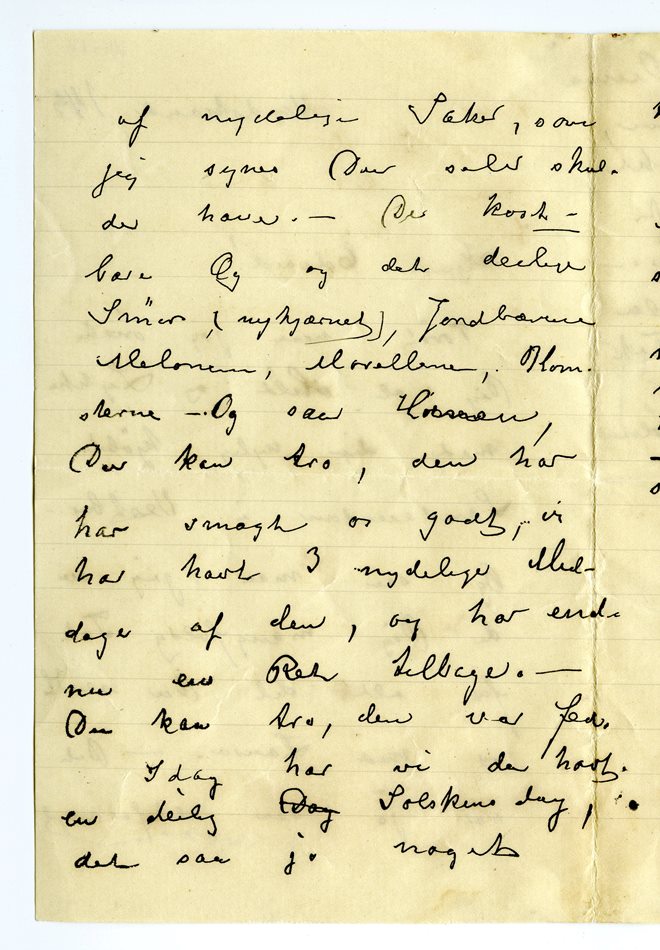 af nydelige Saker, som
jeg synes Du selv skul-
de have. — De kost-
bare Æg og det deilige
Smör, (nykjærnet), Jordbærene
Melonen, Morellene, Blom-
sterne — Og saa Hønen,
Du kan tro, den har
har smagt os godt, vi
har havt 3 nydelige Mid-
dager af den, og har end-
nu en Ret tilbage. —
Du kan tro, den var fed.
Idag har vi da havt
en deilig Dag Solskins dag,
det saa jo noget